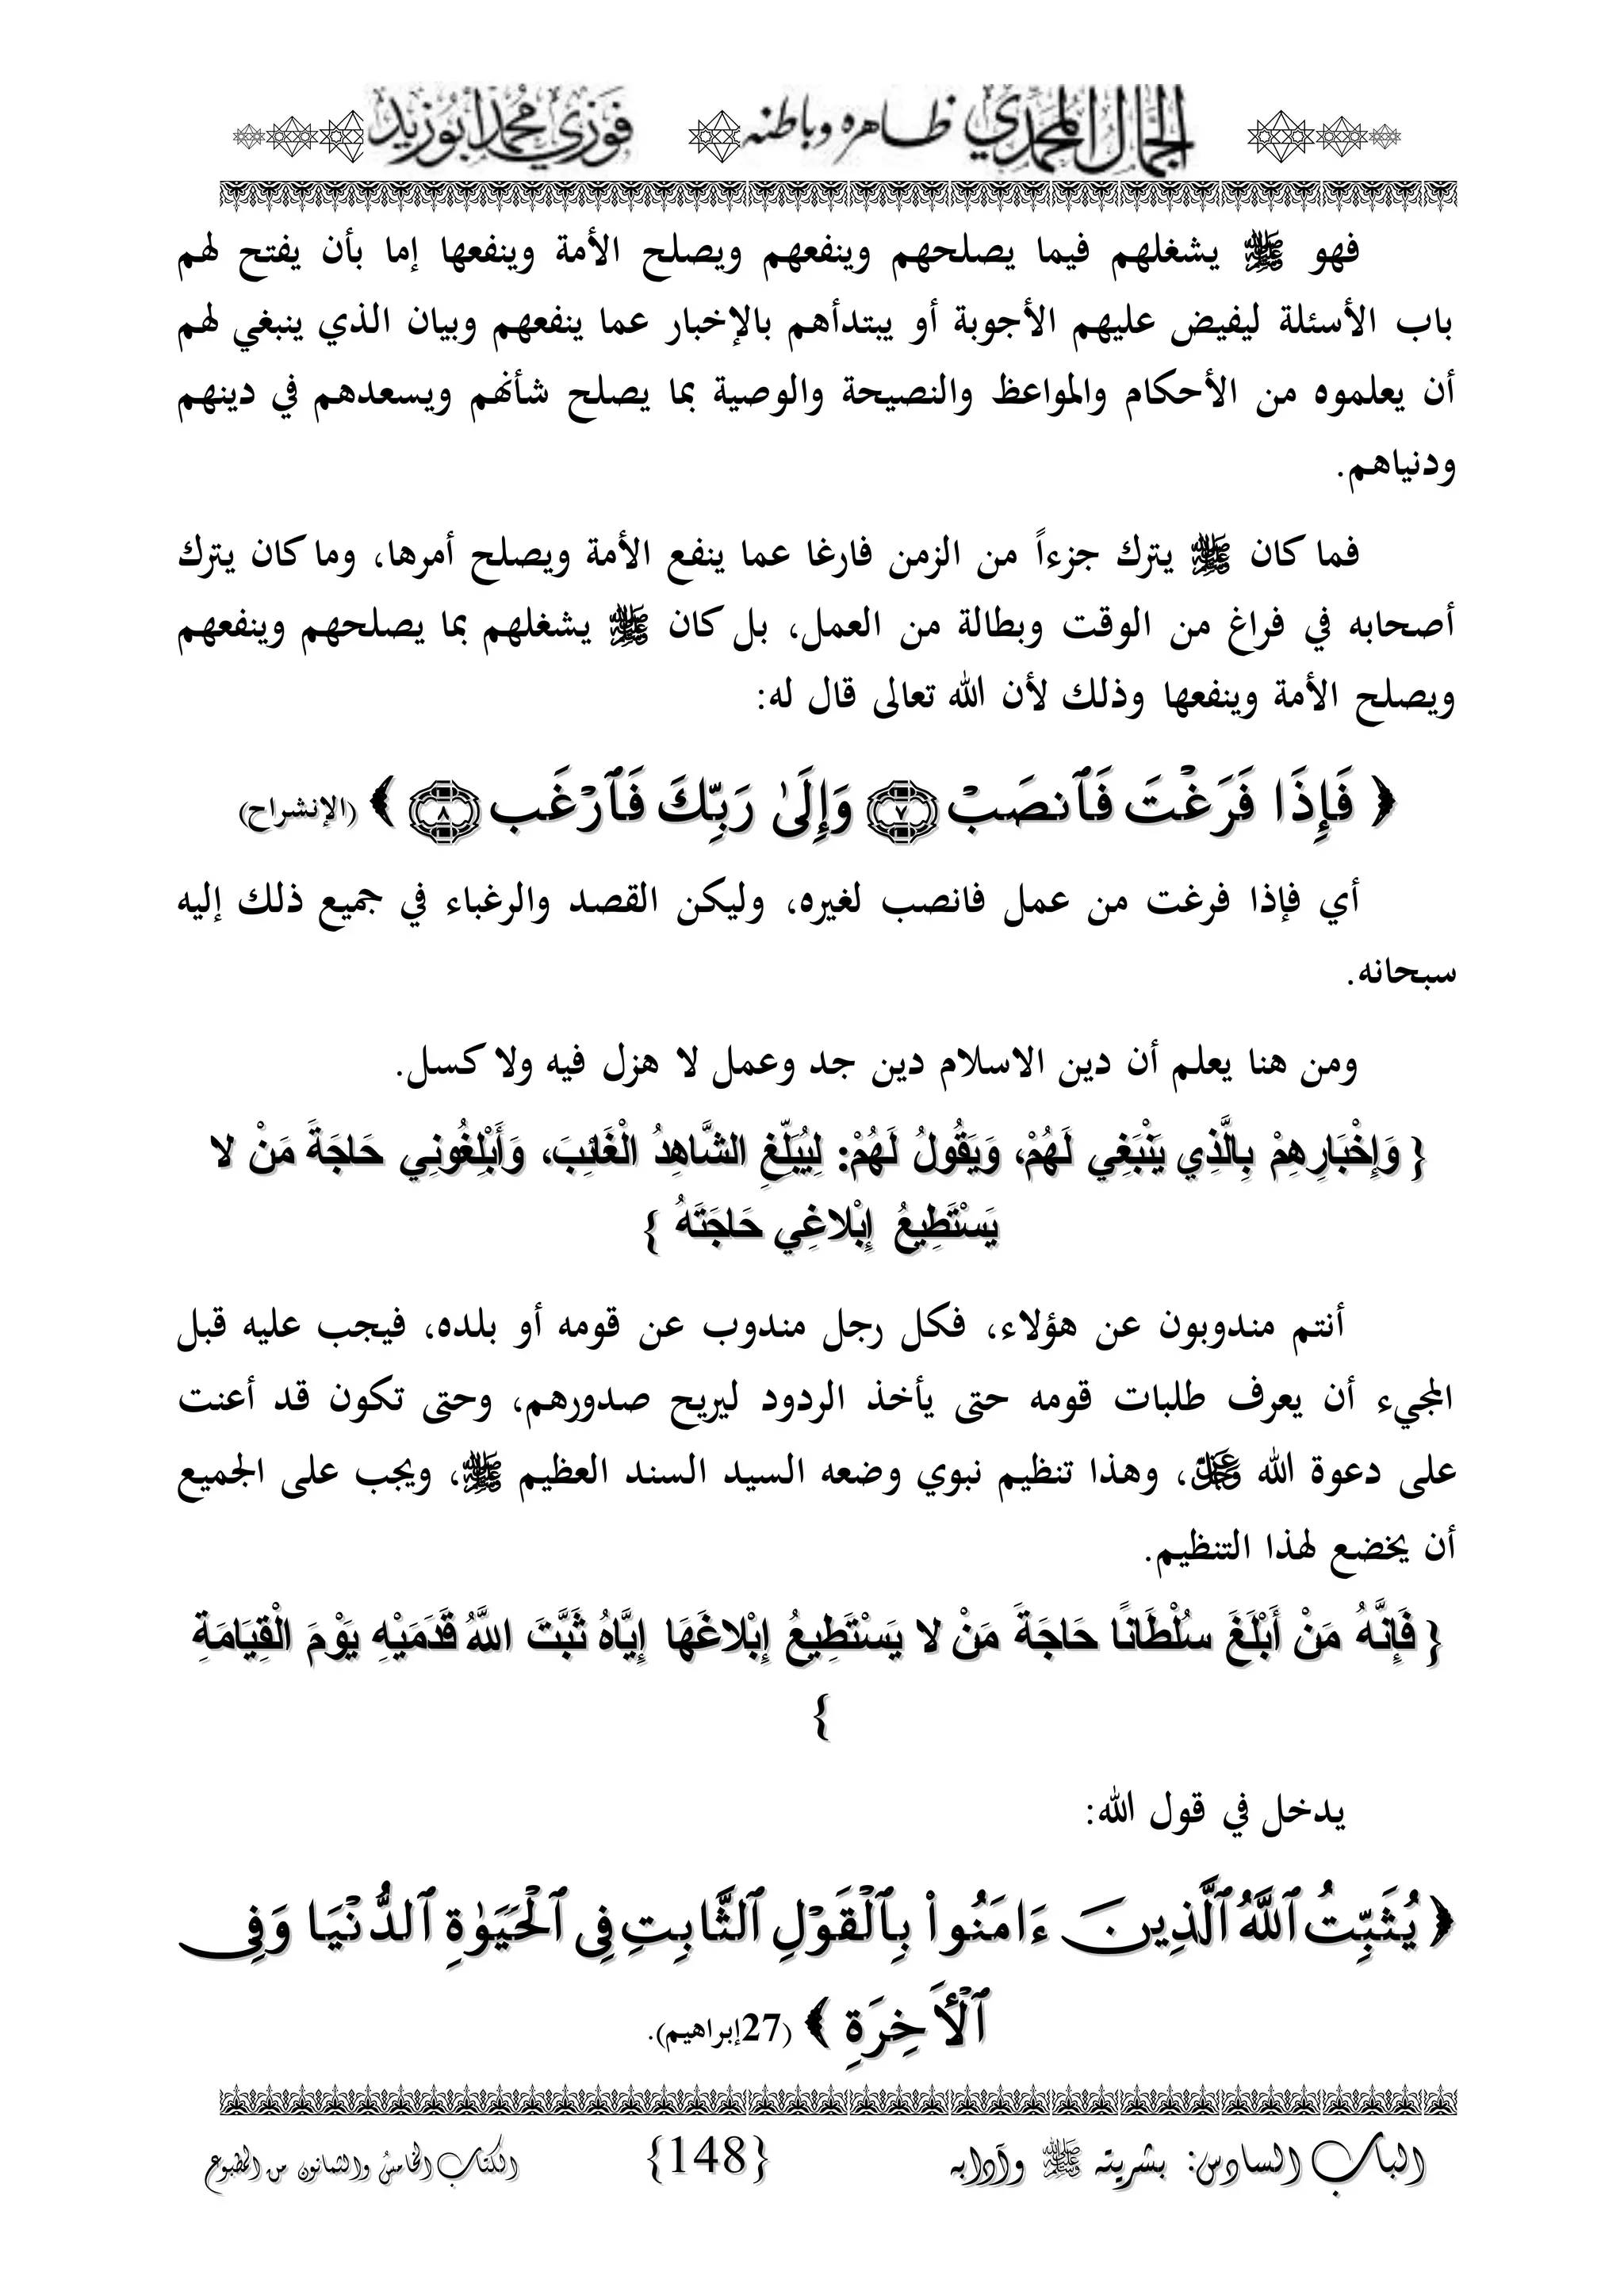 الجمال المحمدي ظاهره وباطنه فوزي محمد أبوزيد
فهو ﷺ يشغلهم فيما يصلحهم وينفعهم ويصلح الأمة وينفعها إما بأن يفتح لهم
باب الأسئلة ليفيض عليهم الأجوبة أو يبتدأهم بالإخبار عما ينفعهم وبيان الذي ينبغي لهم
أن يعلموه من الأحكام والمواعظ والنصيحة والوصية بما يصلح شأنهم ويسعدهم في دينهم
ودنياهم.
فما كان ﷺ يترك جزءاً من الزمن فارغا عما ينفع الأمة ويصلح أمرها، وما كان يترك
أصحابه في فراغ من الوقت وبطالة من العمل، بل كان ﷺ يشغلهم بما يصلحهم وينفعهم
ويصلح الأمة وينفعها وذلك لأن الله تعالى قال له:
﴿ فَإِذَا فَرَغْتَ فَٱنصَبْ ٧ وَإِلَىٰ رَبِّكَ فَٱرْغَب ٨ ﴾ (الإنشراح)
أي فإذا فرغت من عمل فانصب لغيره، وليكن القصد والرغباء في جميع ذلك إليه
سبحانه.
ومن هنا يعلم أن دين الاسلام دين جد وعمل لا هزل فيه ولا كسل.
{ وَإِخْبَارِهِمْ بِالَّذِي يَنْبَغِي لَهُمْ، وَيَقُولُ لَهُمْ: لِيُبَلِّغِ الشَّاهِدُ الْغَائِبَ، وَأَبْلِغُونِي حَاجَةَ مَنْ لا
يَسْتَطِيعُ إِبْلاغِي حَاجَتَهُ }
أنتم مندوبون عن هؤلاء، فكل رجل مندوب عن قومه أو بلده، فيجب عليه قبل
المجيء أن يعرف طلبات قومه حتى يأخذ الردود ليريح صدورهم، وحتى تكون قد أعنت
على دعوة الله عز وجل، وهذا تنظيم نبوي وضعه السيد السند العظيم ﷺ، ويجب على الجميع
أن يخضع لهذا التنظيم.
{ فَإِنَّهُ مَنْ أَبْلَغَ سُلْطَانًا حَاجَةَ مَنْ لا يَسْتَطِيعُ إِبْلاغَهَا إِيَّاهُ ثَبَّتَ اللَّهُ قَدَمَيْهِ يَوْمَ الْقِيَامَةِ
}
يدخل في قول الله:
﴿ يُثَبِّتُ ٱللَّهُ ٱلَّذِينَ ءَامَنُوا۟ بِٱلْقَوْلِ ٱلثَّابِتِ فِى ٱلْحَيَوٰةِ ٱلدُّنْيَا وَفِى
ٱلْأَخِرَةِ ﴾ (27إبراهيم).
الباب السادس: بشريته ﷺ وآدابه {148} الكتاب الخامس والثمانون من المطبوع